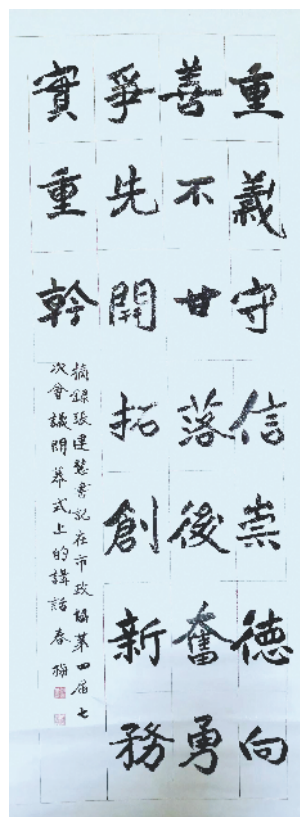 重義守信崇德向
善不甘落後奮勇
爭先開拓創新務
實重幹
摘錄張連慧書記在市政協第四屆七
次會議開幕式上的講話 春